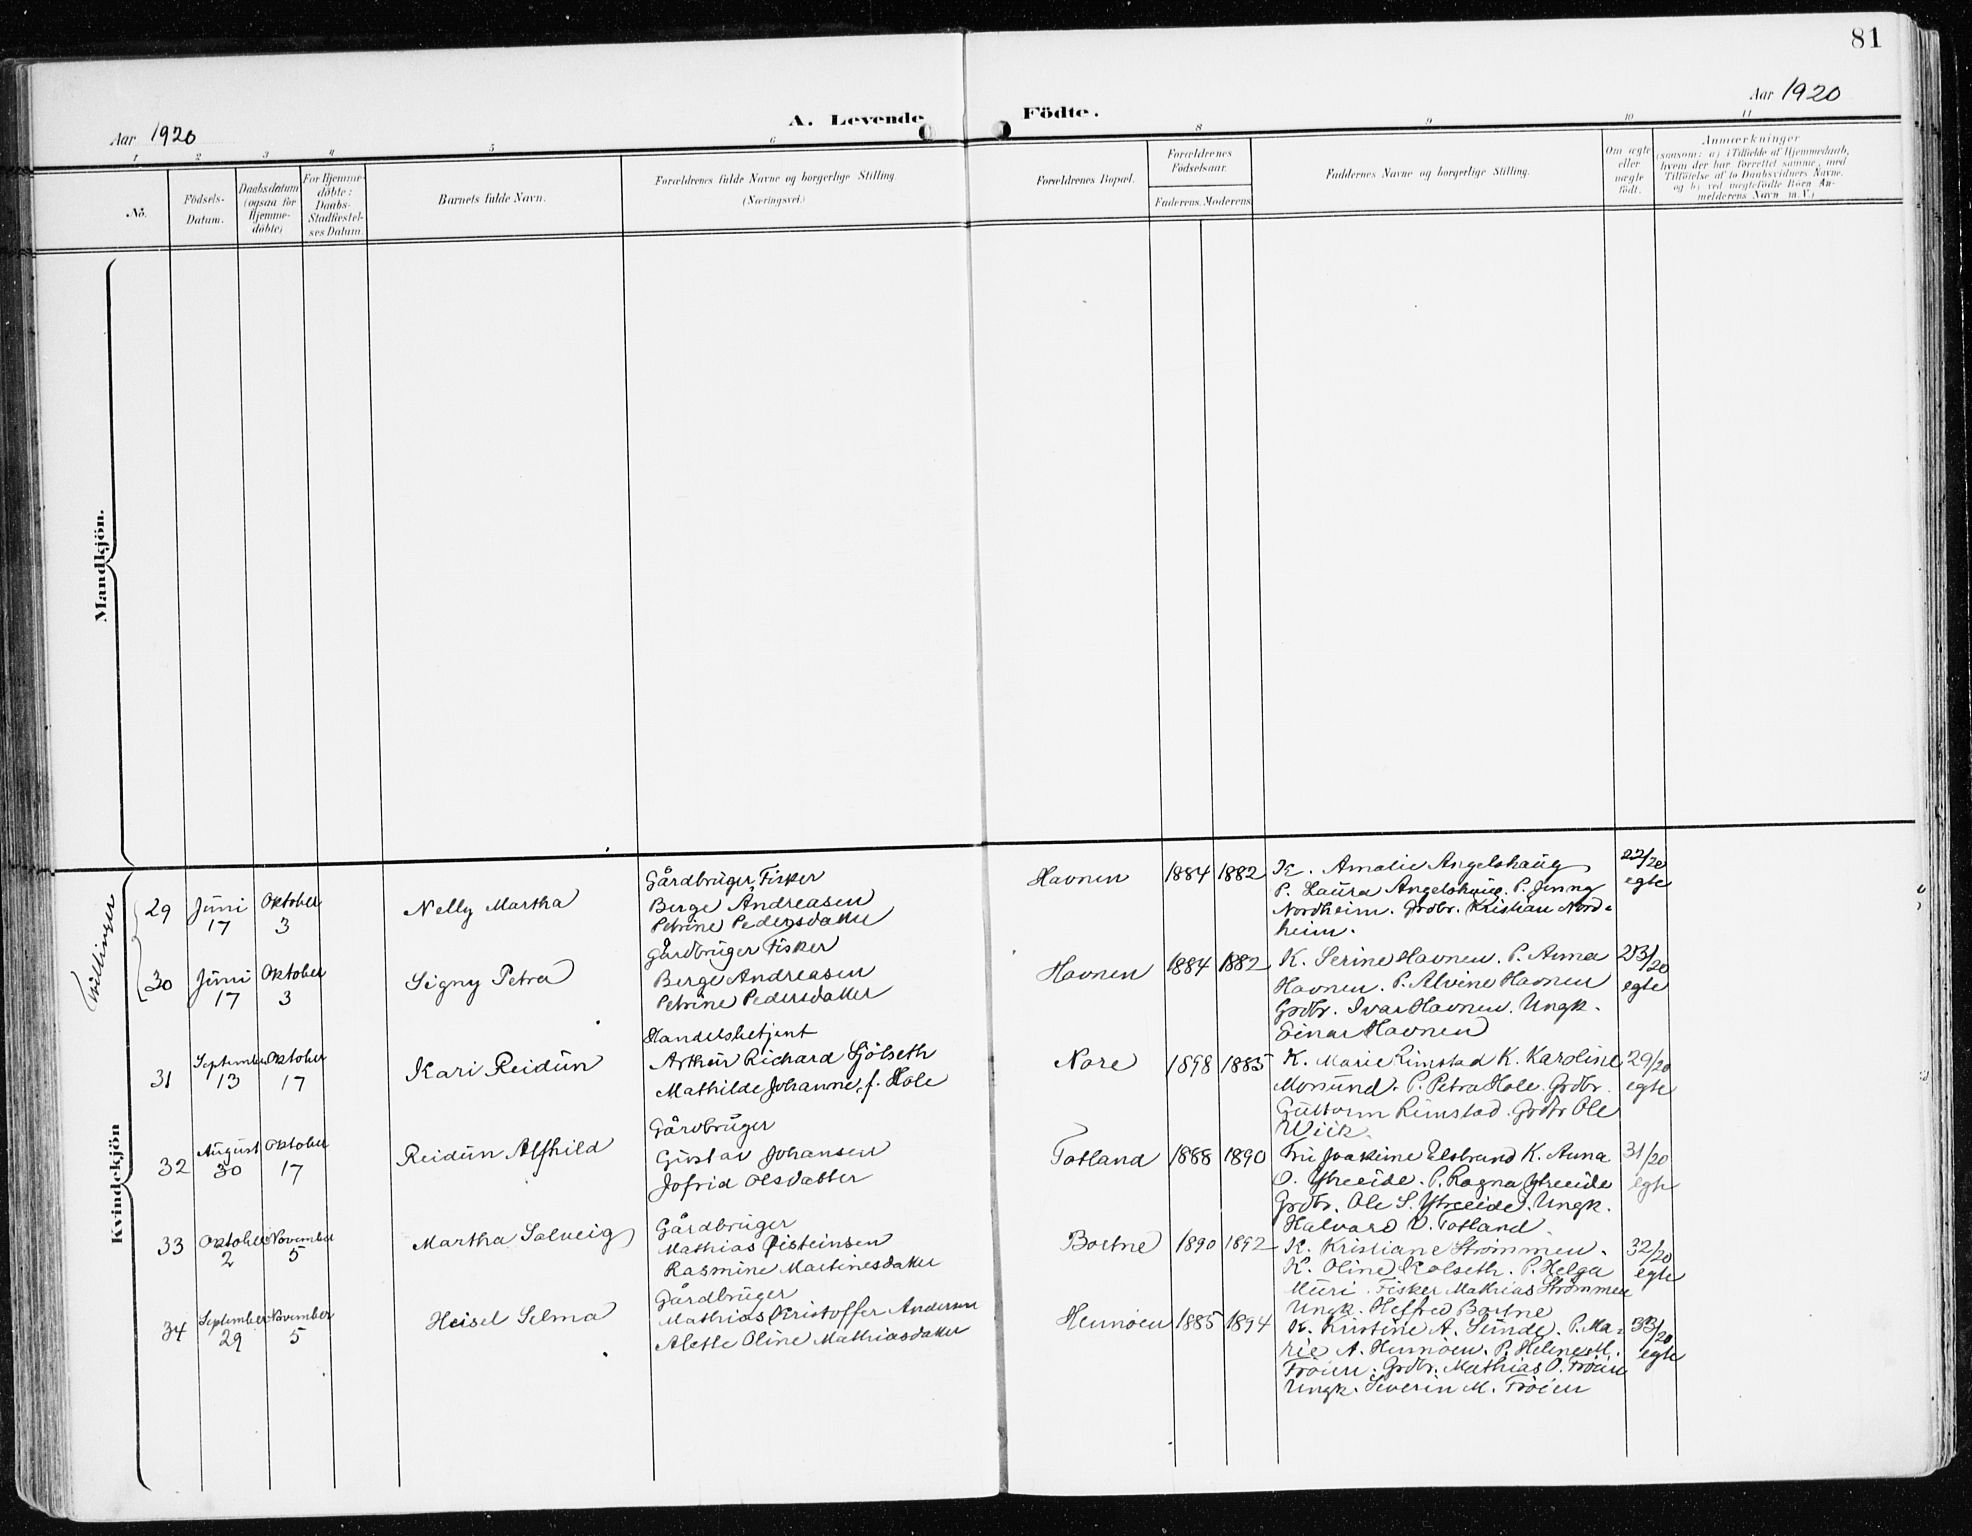 81
Aar 1920
A. Levende Födte.
Aar 1920
1 2 3 4 5 6 8 9 10 11
No.
Födsels-
Datum.
Daabsdatum
(ogsaa for
Hjemme-
döbte)
For Hjemme-
döbte:
Daabs-
Stadfæstel-
ses Datum.
Barnets fulde Navn.
Forældrenes fulde Navne og borgerlige Stilling
(Næringsvei.)
Forældrenes Bopæl.
Forældrenes
Födselsaar.
Faderens. Moderens
Faddernes Navne og borgerlige Stilling.
Om ægte
eller
uægte
födt.
Anmærkninger
(saasom: a) i Tilfælde af Hjemmedaab,
hvem der har forrettet samme, med
Tilföielse af to Daabsvidners Navne.
og b) ved uægtefödte Börn An-
melderens Navn m.V.)
Mandkjön.
Kvindekjön
Tvillinger
29
Juni
17
Oktober
3
Nelly Martha
Gårdbruger Fisker
Berge Andreasen
Petrine Pedersdatter
Havnen
1884
1882
K. Amalie Angelshaug
P. Laura Angelshaug. P. Jenny
Nordheim. Grdbr. Kristian Nord-
heim.
22/20
egte
30
Juni
17
Oktober
3
Signy Petra
Gårdbruger Fisker
Berge Andreasen
Petrine Pedersdatter
Havnen
1884
1882
K. Serine Havnen. P. Anna
Havnen. P. Alvine Havnen
Grdbr. Ivar Havnen. Ungk.
Einar Havnen
23/20
egte
31
September
13
Oktober
17
Kari Reidun
Handelsbetjent
Arthur Richard Sjölseth
Mathilde Johanne, f. Hole
Nore
1898
1885
K. Marie Rimstad K. Karoline
Monsund. P. Petra Hole. Grdbr.
Guttorm Rimstad. Grdbr Ole
Wiik.
29/20
egte
32
August
30
Oktober
17
Reidun Alfhild
Gårdbruger
Gustav Johansen
Jofrid Olsdatter
Totland
1888
1890
Fru Joakime Elstrand K. Anna
O. Ytreeide. P. Ragna Ytreeide
Grdbr. Ole S. Ytreeide. Ungk.
Halvard O. Totland.
31/20
egte
33
Oktober
2
November
5
Martha Solveig
Gårdbruger
Mathias Eisteinsen
Rasmine Martinesdatter
Bortne
1890
1892
K. Kristiane Strömmen.
K. Oline Kolseth. P. Helga
Muri. Fisker Mathias Strömmen
Ungk. Hefted Bortne
32/20
egte
34
September
29
November
5
Heisel Selma
Gårdbruger
Mathias Kristoffer Andersen
Alette Oline Mathiasdatter
Hennöen
1885
1894
K. Kristine A. Sunde. P. Ma-
rie A. Hennöen. P. Heline M.
Fröien. Grdbr. Mathias O. Fröien
Ungk. Severin M. Fröien
33/20
egte